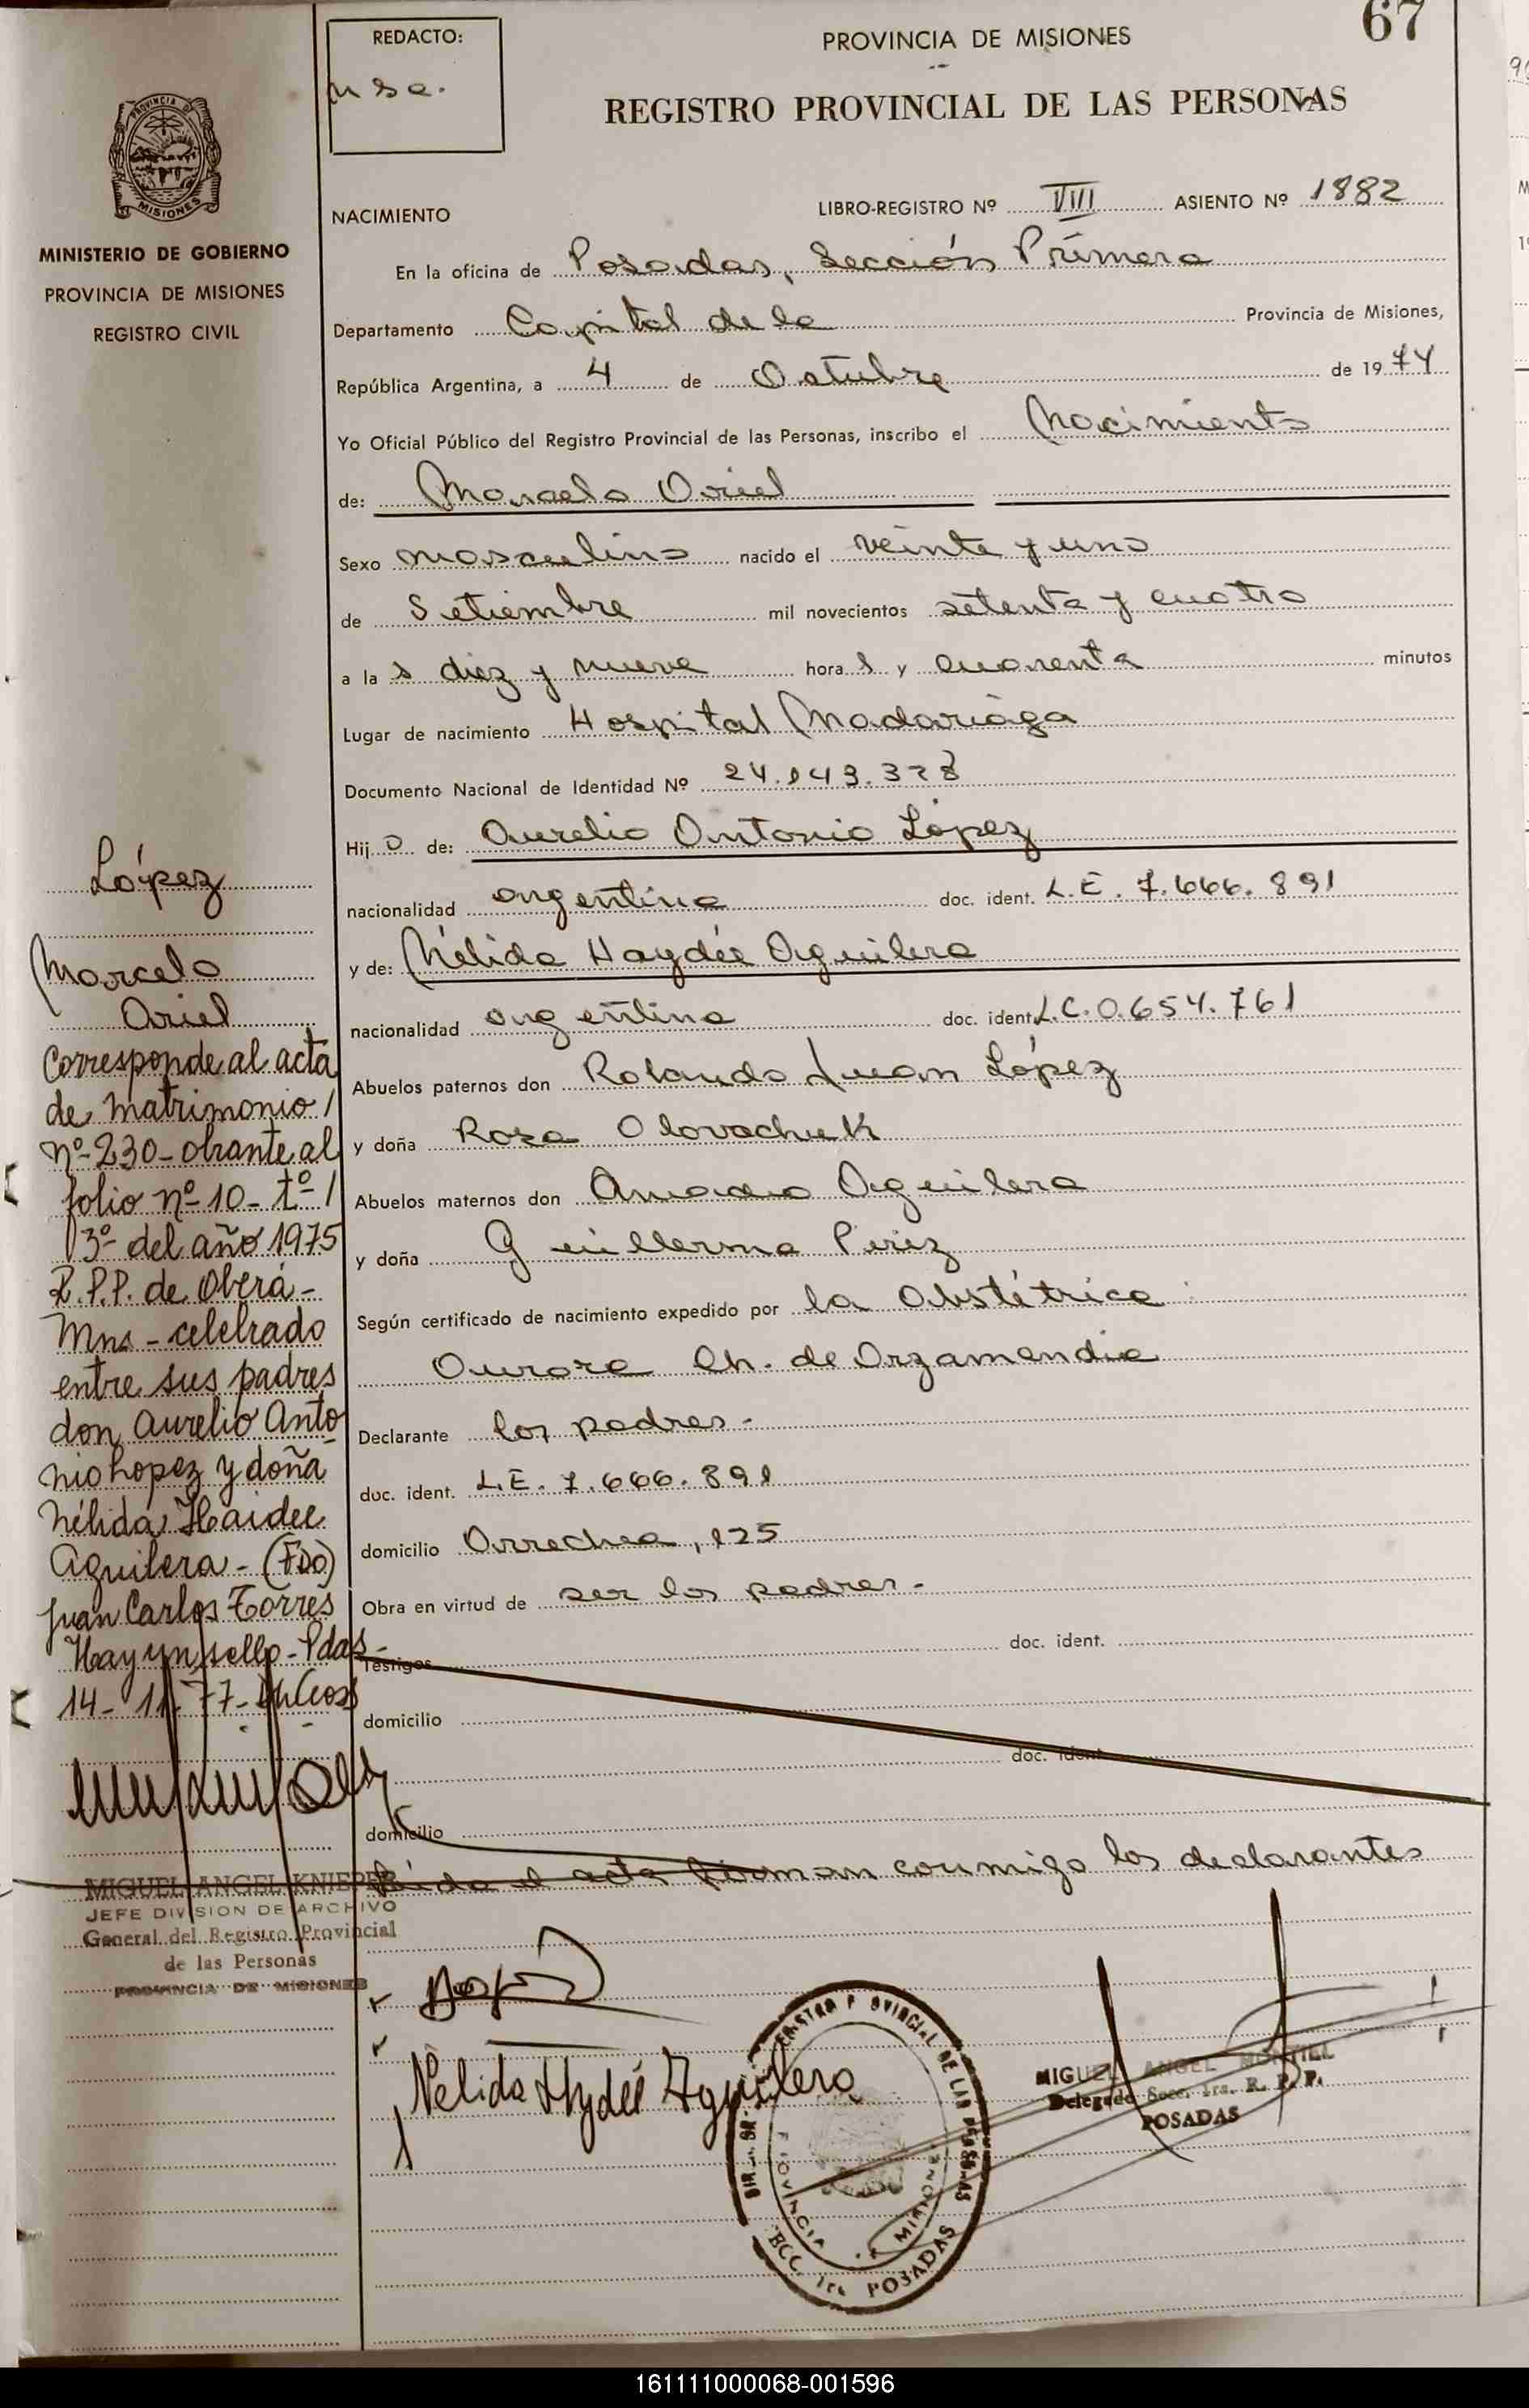 67
REDACTO:
PROVINCIA DE MISIONES
REGISTRO PROVINCIAL DE LAS PERSONAS
PROVINCIA D
MISIONES
MINISTERIO DE GOBIERNO
PROVINCIA DE MISIONES
REGISTRO CIVIL
NACIMIENTO
LIBRO-REGISTRO Nº VIII ASIENTO Nº 1882
En la oficina de Posadas, Sección Primera
Departamento Capital de la Provincia de Misiones,
República Argentina, a 4 de Octubre de 1974
Yo Oficial Público del Registro Provincial de las Personas, inscribo el Nacimiento
de: Marcelo Ariel
Sexo masculino nacido el veinte y uno
de Setiembre mil novecientos setenta y cuatro
a la s diez y nueve hora s y cuarenta minutos
Lugar de nacimiento Hospital Madariaga
Documento Nacional de Identidad Nº 24.143.378
Hij o de: Aurelio Antonio López
nacionalidad argentina doc. ident. L.E. 7.666.891
y de: Nélida Haydée Aguilera
nacionalidad argentina doc. ident. L.C. 0.654.761
Abuelos paternos don Rolando Juan López
y doña Rosa Olovachuk
Abuelos maternos don Amadeo Aguilera
y doña Guillerma Pérez
Según certificado de nacimiento expedido por la Obstétrica
Aurora Ch. de Orzamendia
Declarante los padres-
doc. ident. L.E. 7.666.891
domicilio Arrechea, 125
Obra en virtud de ser los padres-
doc. ident.
Testigos
domicilio
doc. ident.
domicilio
Leída el acta firman conmigo los declarantes
López
Marcelo
Ariel
Corresponde al acta
de matrimonio/
nº 230- obrante al
folio nº 10- tº/
3º del año 1975
R.P.P. de Oberá-
Mns- celebrado
entre sus padres
don Aurelio Anto
nio Lopez y doña
Nélida Haidee
Aguilera- (FDO)
Juan Carlos Torres
Hay un sello- Pdas-
14- 11- 77-
MIGUEL ANGEL KNIEPER
JEFE DIVISION DE ARCHIVO
General del Registro Provincial
de las Personas
PROVINCIA DE MISIONES
Nélida Hydeé Aguilera
MIGUEL ANGEL MONTIEL
Delegado Secc. 1ra. R. P. P.
POSADAS
PROVINCIAL DE LAS PERSONAS
PROVINCIA DE MISIONES
SECC. 1ra POSADAS
161111000068-001596